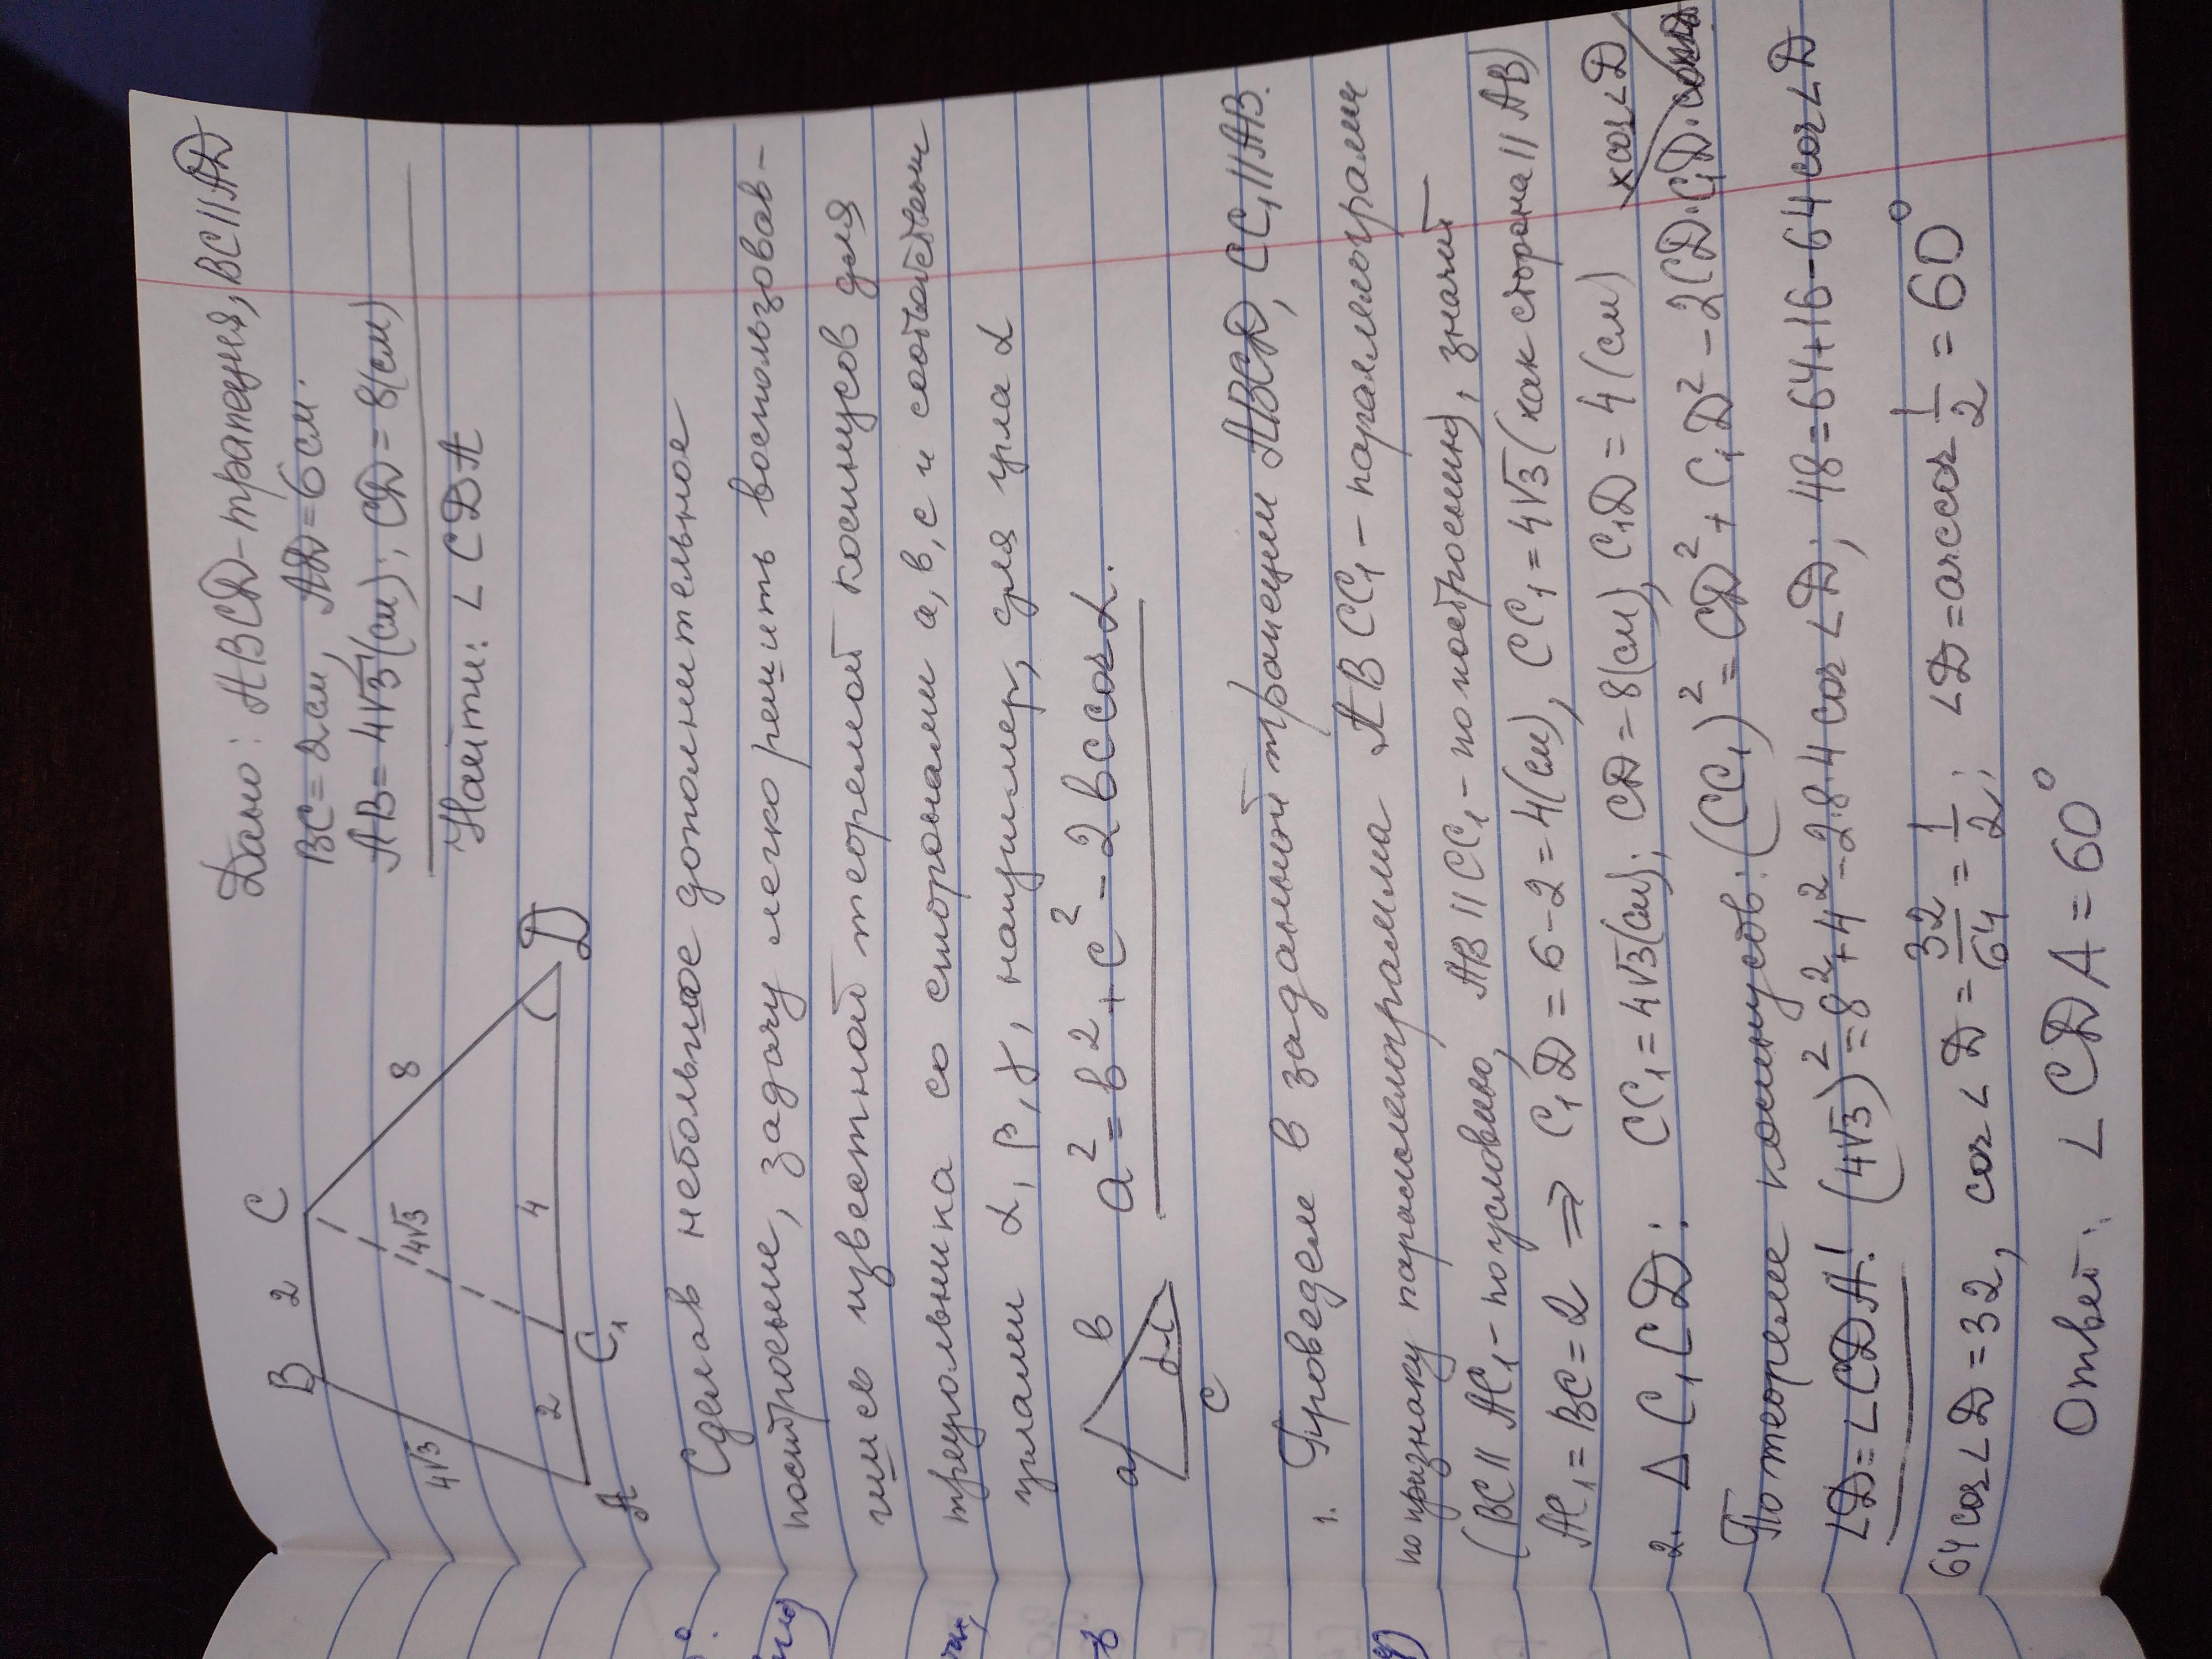 Дано: ABCD-трапеция, BC||AD
BC=2см, AD=6см.
AB=4√3(см); CD=8(см)
Найти: ∠CDA
B 2 C
4√3 4√3 8
A 2 C₁ 4 D
Сделав небольшое дополнительное
построение, задачу легко решить воспользовав-
шись известной теоремой косинусов для
треугольника со сторонами a, b, c и соответствен
углами α, β, γ, например, для угла α
a b α c
a²=b²+c²-2bccosα.
1. Проведем в заданной трапеции ABCD, CC₁||AB.
по признаку параллелограмма ABCC₁-параллелограмм
(BC||AC₁-по условию, AB||CC₁-по построению), значит
AC₁=BC=2 ⇒ C₁D=6-2=4(см), CC₁=4√3(как сторона || AB)
2. ΔC₁CD: CC₁=4√3(см); CD=8(см), C₁D=4(см)
По теореме косинусов: (CC₁)²=CD²+C₁D²-2CD·C₁D· xcos∠D
∠D=∠CDA! (4√3)²=8²+4²-2·8·4cos∠D; 48=64+16-64cos∠D
64cos∠D=32, cos∠D=32/64=1/2; ∠D=arccos 1/2=60°
Ответ: ∠CDA=60°